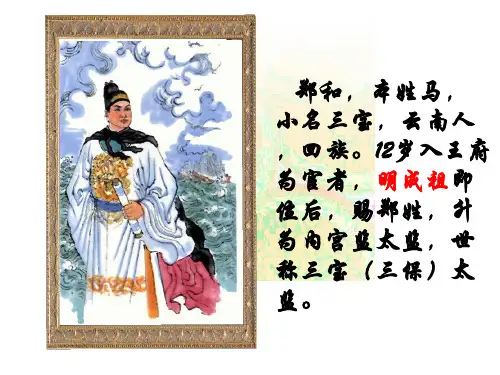 郑和，本姓马，
小名三宝，云南人
，回族。12岁入王府
为宦者，明成祖即
位后，赐郑姓，升
为内官监太监，世
称三宝（三保）太
监。